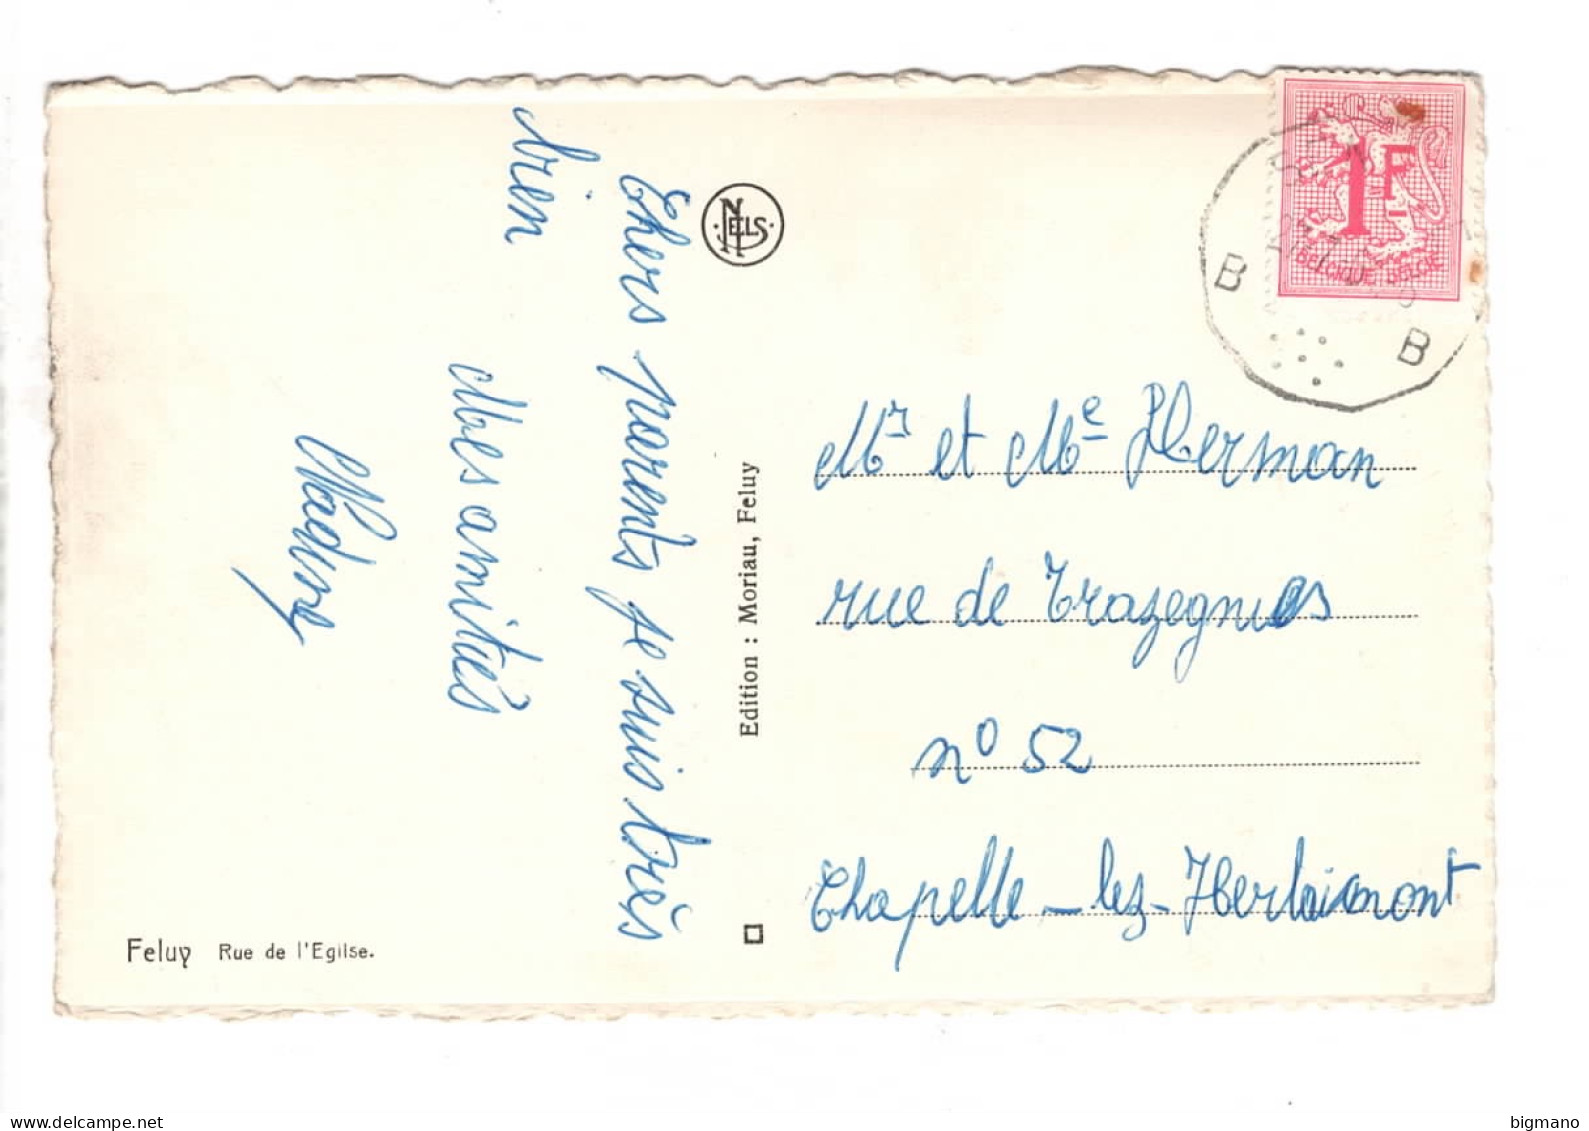 Chers parents je suis très
bien
Mes amitiés
Nadine
NELS
Edition : Moriau, Feluy
1F
BELGIQUE BELGIE
B B
Mr et Me Herman
rue de Trazegnies
n° 52
Chapelle-lez-Herlaimont
Feluy Rue de l'Eglise.
www.delcampe.net
bigmano